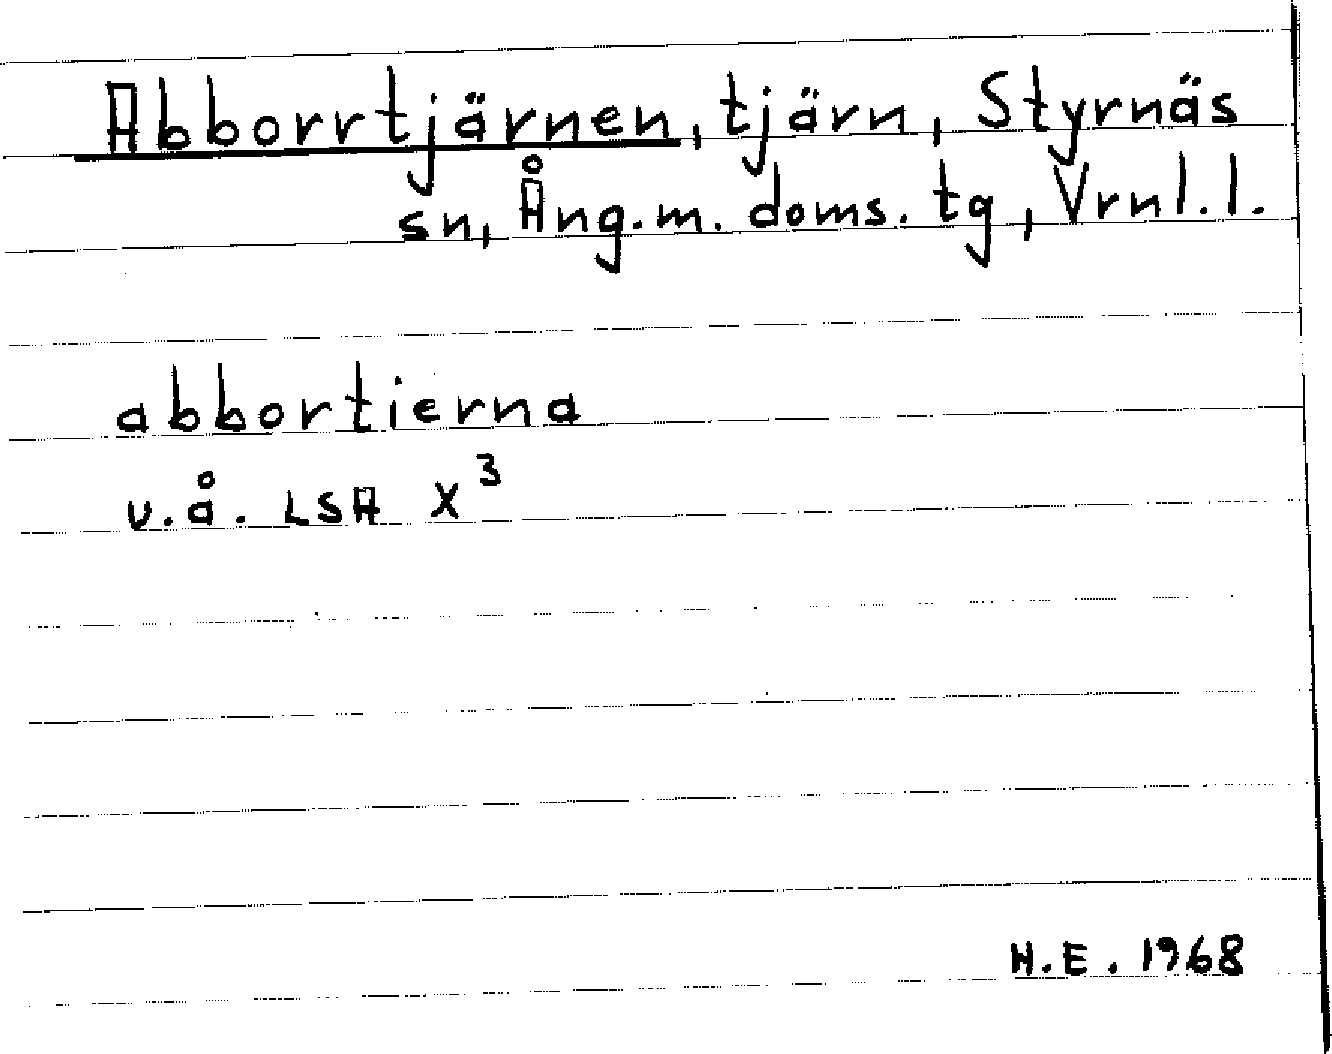 Abborrtjärnen, tjärn, Styrnäs
sn, Ång.m. doms. tg, Vrnl.l.
abbortierna
u.å. LSA X³
H.E. 1968